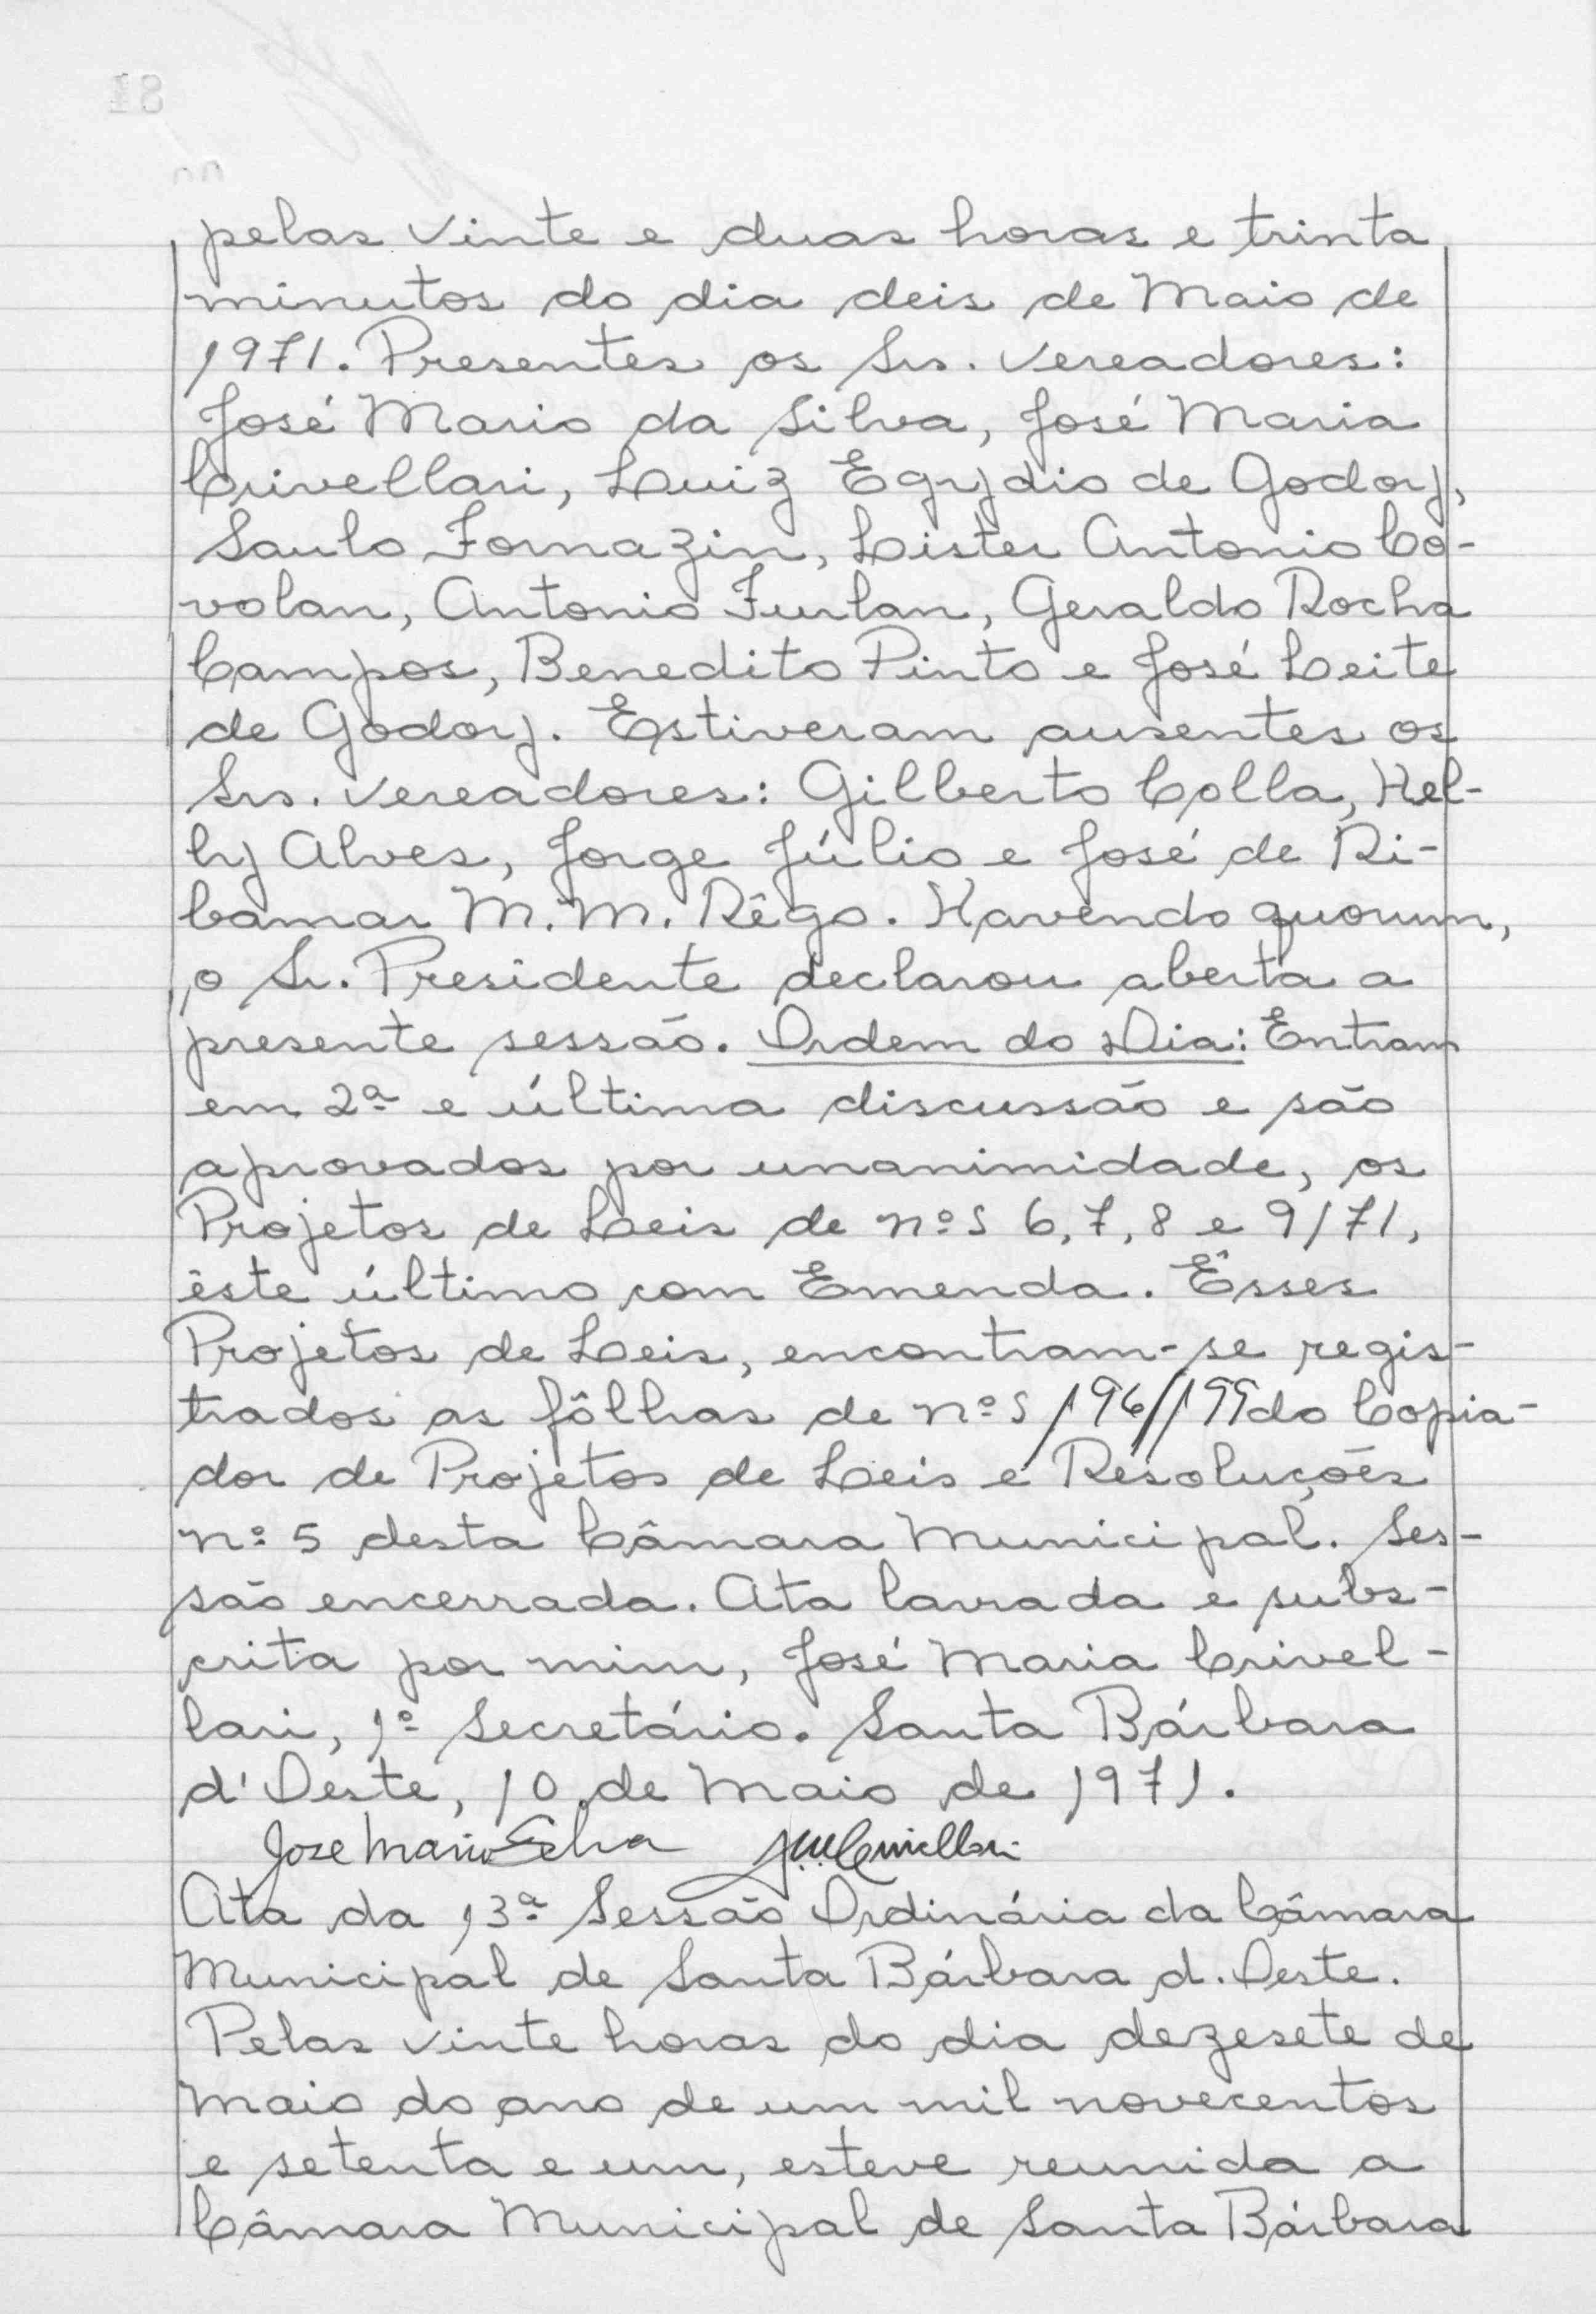 pelas vinte e duas horas e trinta
minutos do dia deis de Maio de
1971. Presentes os Srs. Vereadores:
José Mario da Silva, José Maria
Crivellari, Luiz Egydio de Godoy,
Saulo Fornazin, Lister Antonio Co-
volan, Antonio Furlan, Geraldo Rocha
Campos, Benedito Pinto e José Leite
de Godoy. Estiveram ausentes os
Srs. Vereadores: Gilberto Colla, Hel-
ly Alves, Jorge Júlio e José de Ri-
bamar M. M. Rêgo. Havendo quorum,
o Sr. Presidente declarou aberta a
presente sessão. Ordem do Dia: Entram
em 2ª e última discussão e são
aprovados por unanimidade, os
Projetos de Leis de nºs 6, 7, 8 e 9/71,
êste último com Emenda. Êsses
Projetos de Leis, encontram-se regis-
trados as fôlhas de nºs 196/199 do Copia-
dor de Projetos de Leis e Resoluções
nº 5 desta Câmara Municipal. Ses-
são encerrada. Ata lavrada e subs-
crita por mim, José Maria Crivel-
lari, 1º Secretário. Santa Bárbara
d'Oeste, 10 de Maio de 1971.
Jose Mario Silva JMCrivellari
Ata da 13ª Sessão Ordinária da Câmara
Municipal de Santa Bárbara d.Oeste.
Pelas vinte horas do dia dezesete de
Maio do ano de um mil novecentos
e setenta e um, esteve reunida a
Câmara Municipal de Santa Bárbara